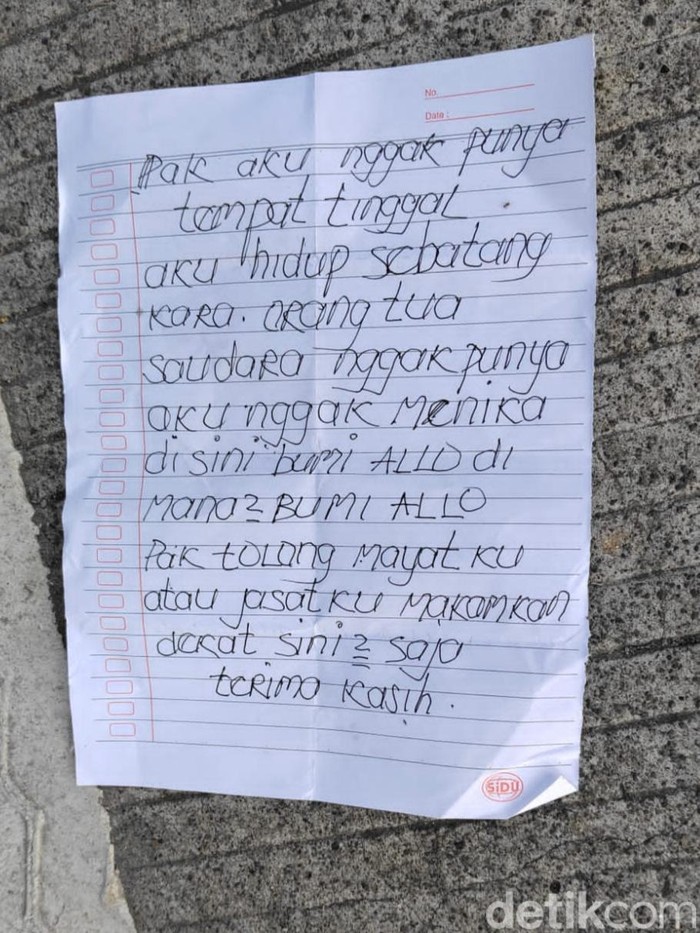 No.
Date :
Pak aku nggak punya
tempat tinggal.
aku hidup sebatang
kara. orang tua
saudara nggak punya
aku nggak menika
disini bumi ALLO di
mana2 BUMI ALLO
Pak tolang mayat ku
atau jasatku makamkan
dekat sini2 saja
terima kasih.
SiDU
detikcom